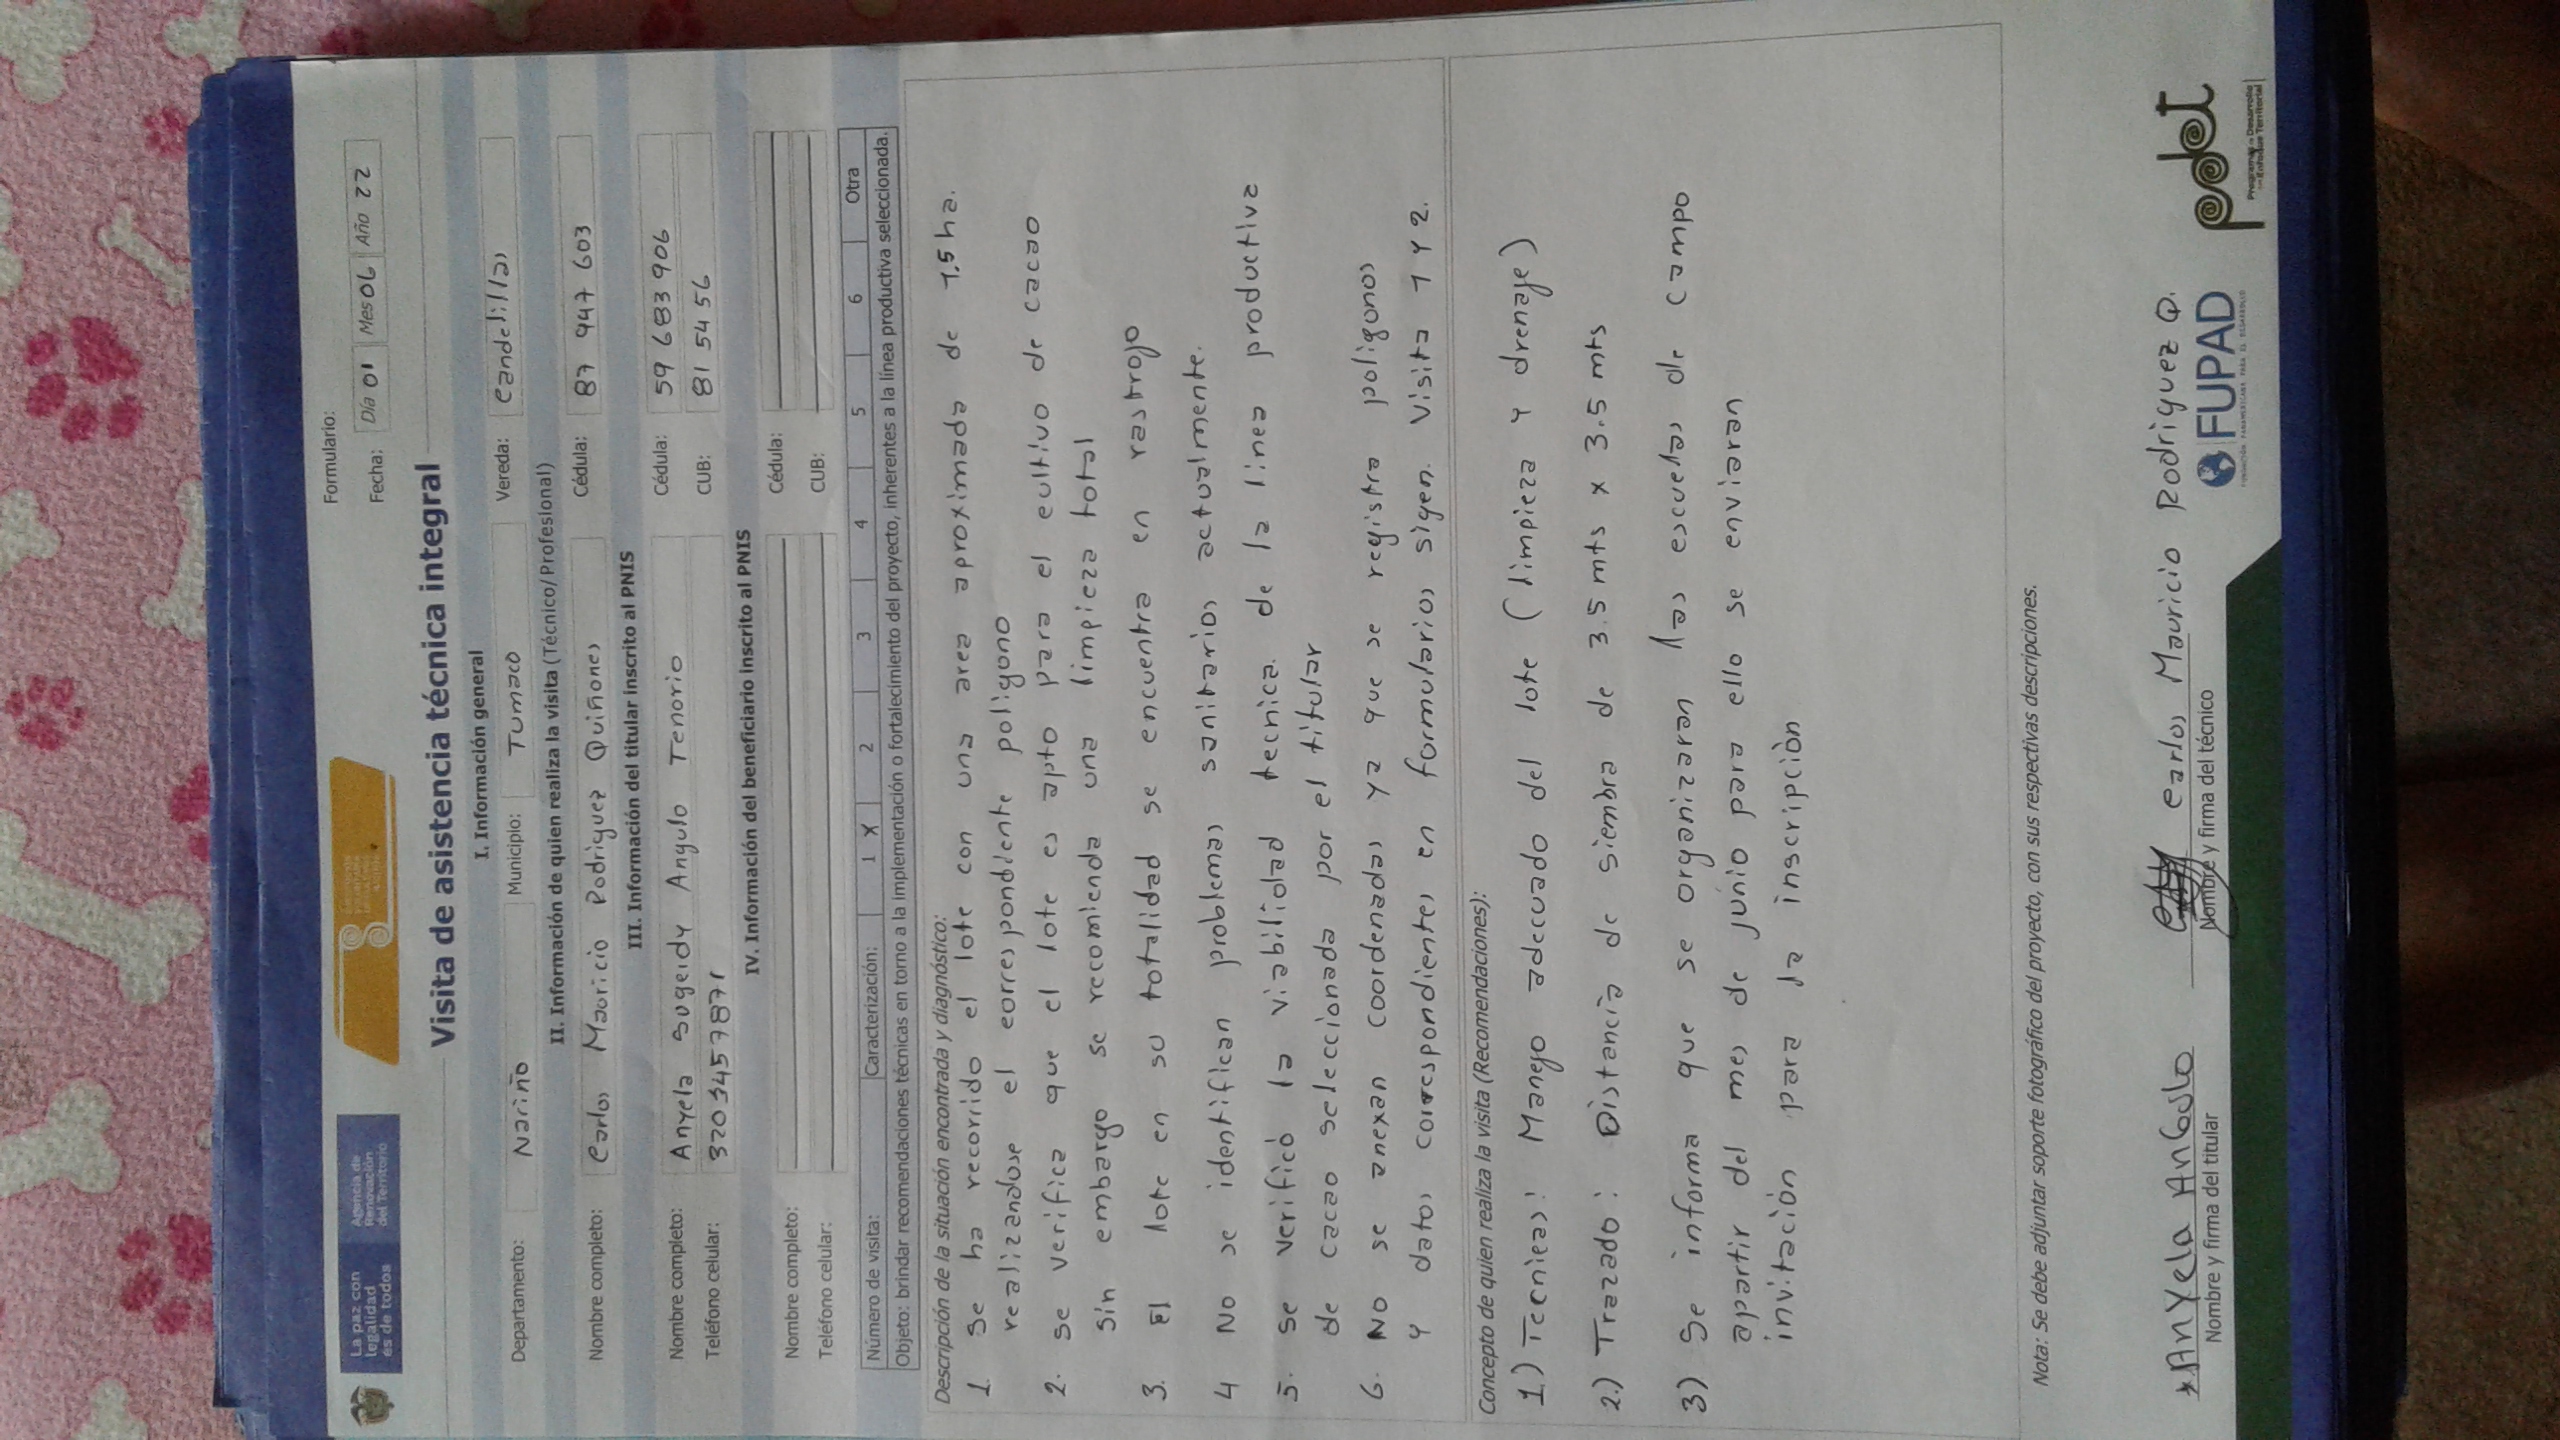 La paz con
legalidad
es de todos
Agencia de
Renovación
del Territorio
Formulario:
Fecha: Día 01 Mes 06 Año 22
Visita de asistencia técnica integral
I. Información general
Departamento: Nariño Municipio: Tumaco Vereda: Candelillas
II. Información de quien realiza la visita (Técnico/Profesional)
Nombre completo: Carlos Mauricio Rodriguez Quiñones Cédula: 87 947 603
III. Información del titular inscrito al PNIS
Nombre completo: Anyela Sugeidy Angulo Tenorio Cédula: 59 683 906
Teléfono celular: 3203457871 CUB: 81 54 56
IV. Información del beneficiario inscrito al PNIS
Nombre completo: Cédula:
Teléfono celular: CUB:
Número de visita: Caracterización: 1 X 2 3 4 5 6 Otra
Objeto: brindar recomendaciones técnicas en torno a la implementación o fortalecimiento del proyecto, inherentes a la línea productiva seleccionada.
Descripción de la situación encontrada y diagnóstico:
1. Se ha recorrido el lote con una area aproximada de 1,5 ha.
realizandose el correspondiente poligono
2. se verifica que el lote es apto para el cultivo de cacao
sin embargo se recomienda una limpieza total
3. El lote en su totalidad se encuentra en rastrojo
4 No se identifican problemas sanitarios actualmente.
5. se verificò la viabilidad tecnica de la linea productiva
de cacao seleccionada por el titular
6. No se anexan coordenadas ya que se registra poligonos
y datos correspondientes en formularios sigen. Visita 1 y 2.
Concepto de quien realiza la visita (Recomendaciones):
1.) Tecnicas: Manejo adecuado del lote (limpieza y drenaje)
2.) Trazado: Distancia de siembra de 3.5 mts x 3.5 mts
3) Se informa que se organizaran las escuelas de campo
apartir del mes de junio para ello se enviaran
invitaciòn para la inscripciòn
Nota: Se debe adjuntar soporte fotográfico del proyecto, con sus respectivas descripciones.
*AnYela AnGulo
Nombre y firma del titular
Carlos Mauricio Rodriguez Q.
Nombre y firma del técnico
FUPAD
FUNDACIÓN PANAMERICANA PARA EL DESARROLLO
pdet
Programas de Desarrollo
con Enfoque Territorial